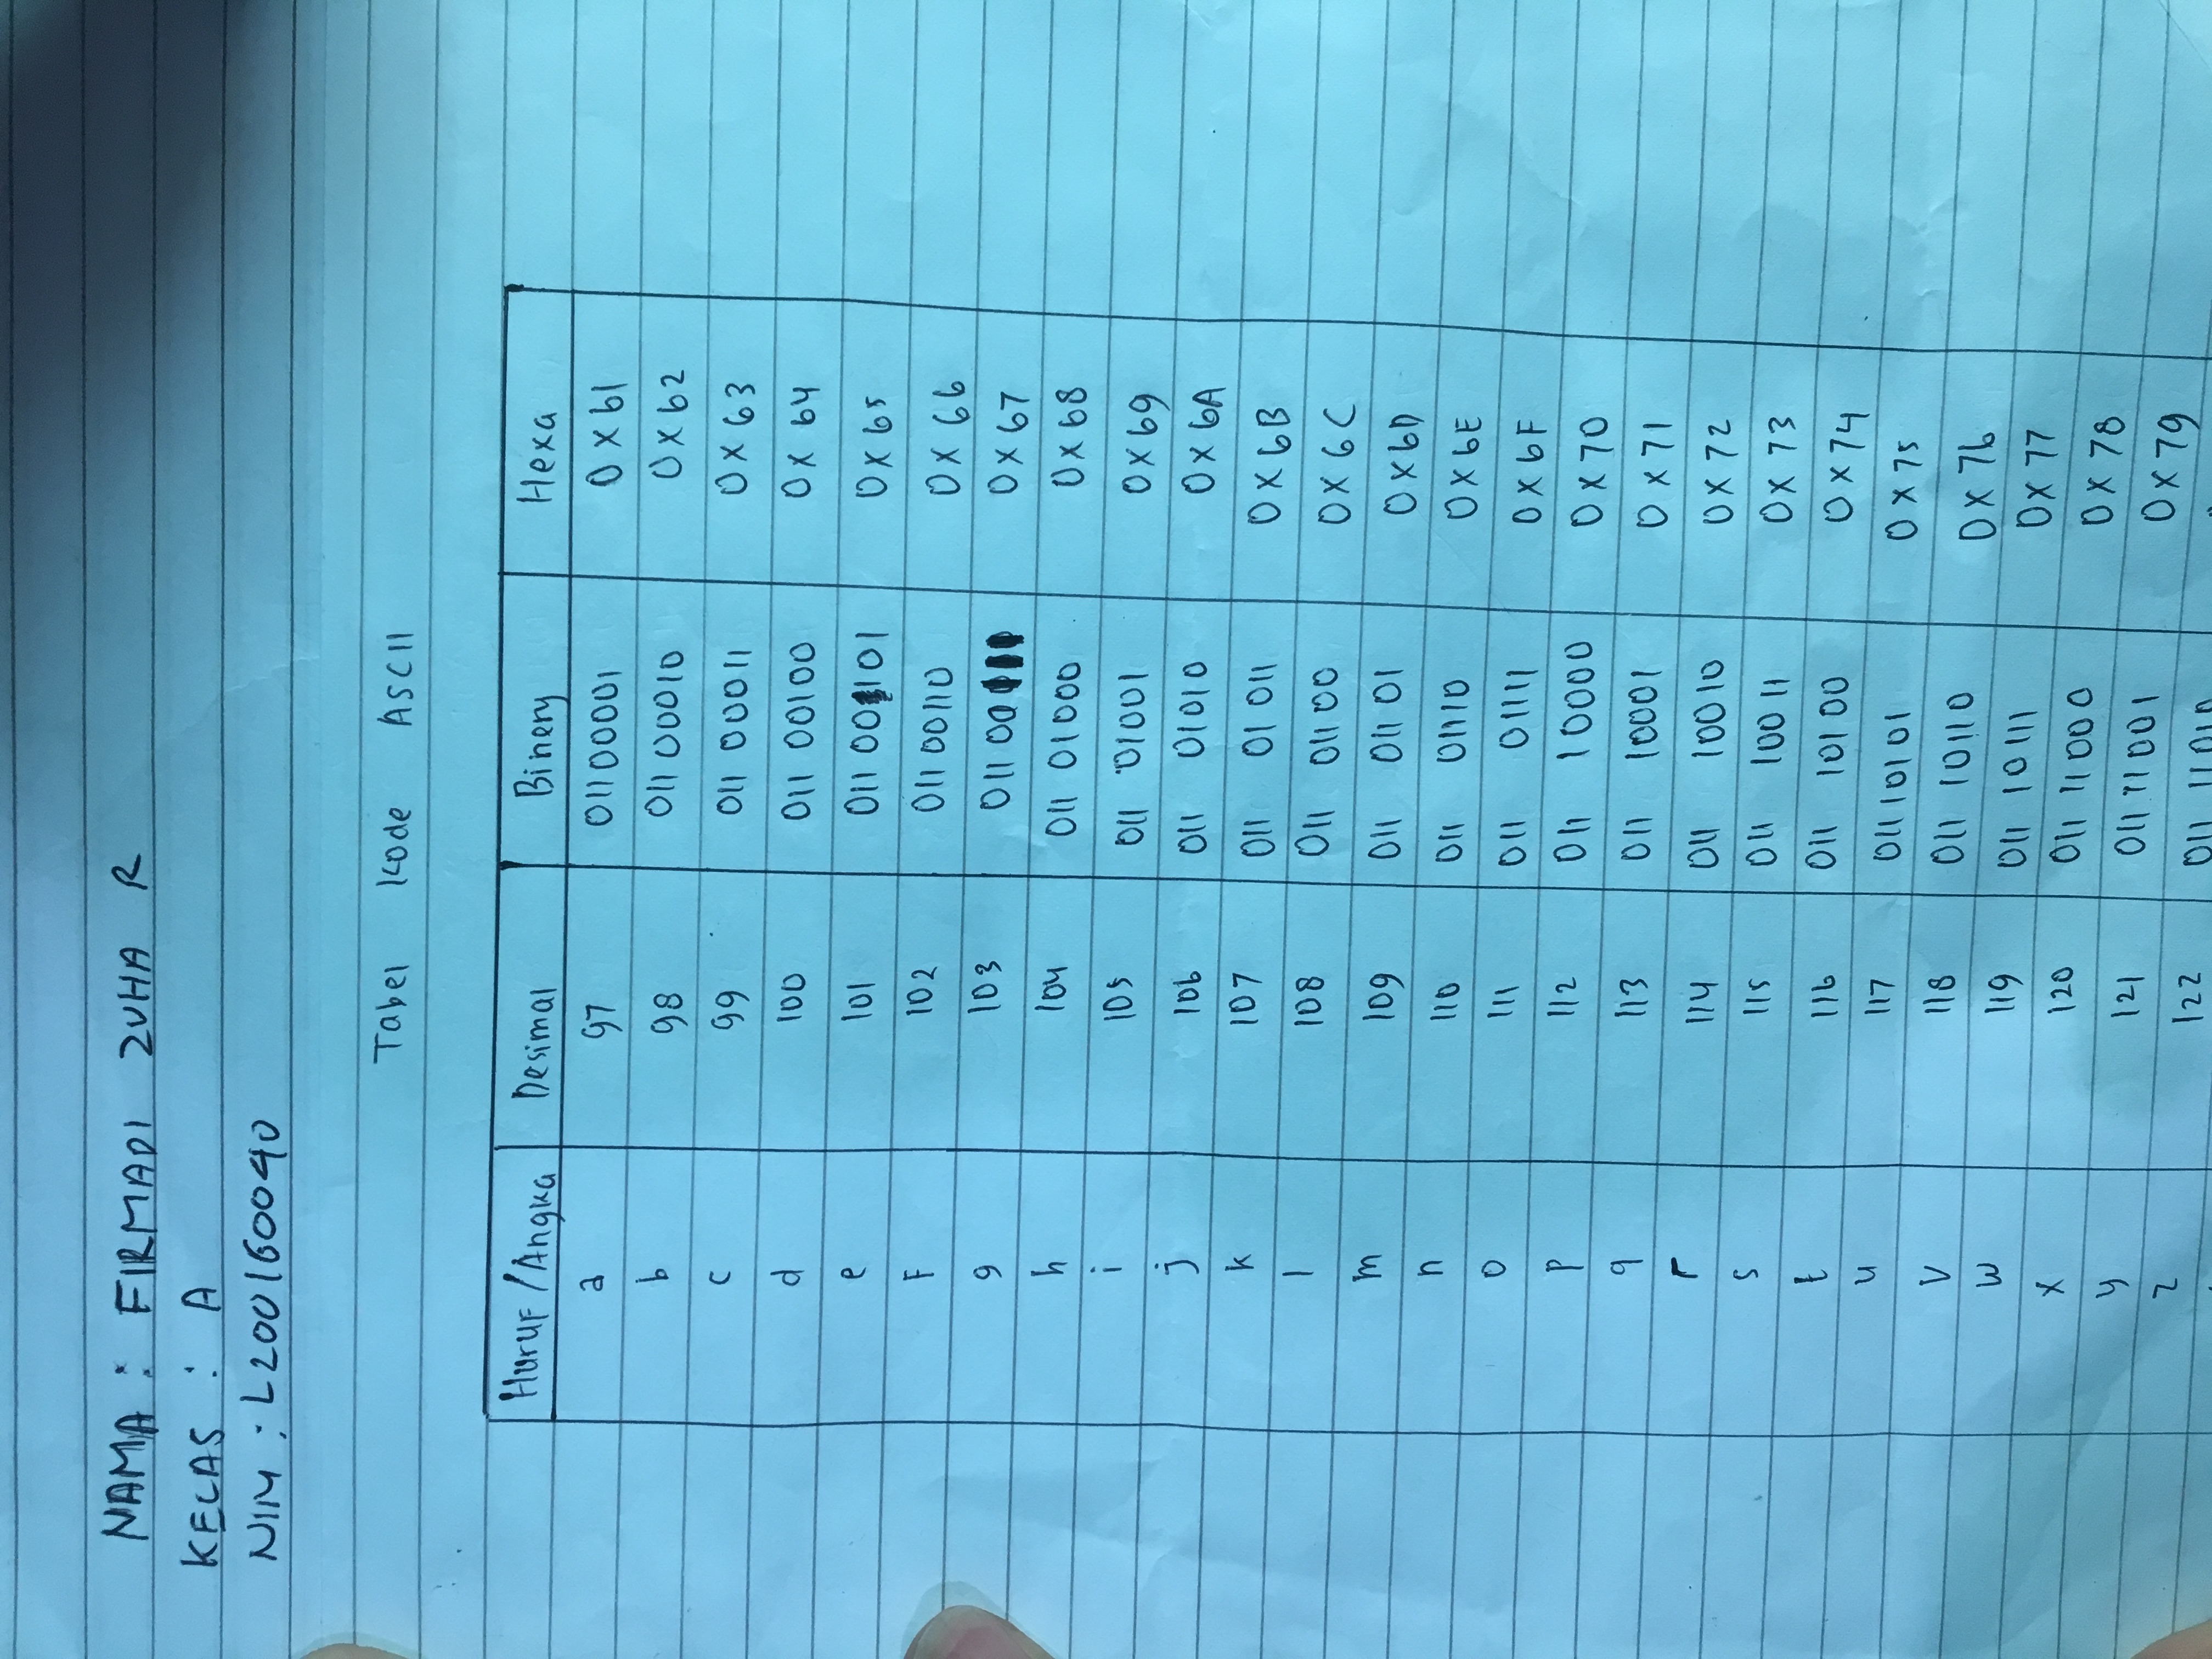 NAMA : FIRMADI ZUHA R
KELAS : A
NIM : L200160040
Tabel Kode ASCII
Huruf/Angka Desimal Binery Hexa
a 97 01100001 0x61
b 98 01100010 0x62
c 99 01100011 0x63
d 100 01100100 0x64
e 101 01100101 0x65
F 102 01100110 0x66
g 103 01100111 0x67
h 104 01101000 0x68
i 105 01101001 0x69
j 106 01101010 0x6A
k 107 01101011 0x6B
l 108 01101100 0x6C
m 109 01101101 0x6D
n 110 01101110 0x6E
o 111 01101111 0x6F
p 112 01110000 0x70
q 113 01110001 0x71
r 114 01110010 0x72
s 115 01110011 0x73
t 116 01110100 0x74
u 117 01110101 0x75
v 118 01110110 0x76
w 119 01110111 0x77
x 120 01111000 0x78
y 121 01111001 0x79
z 122 01111010